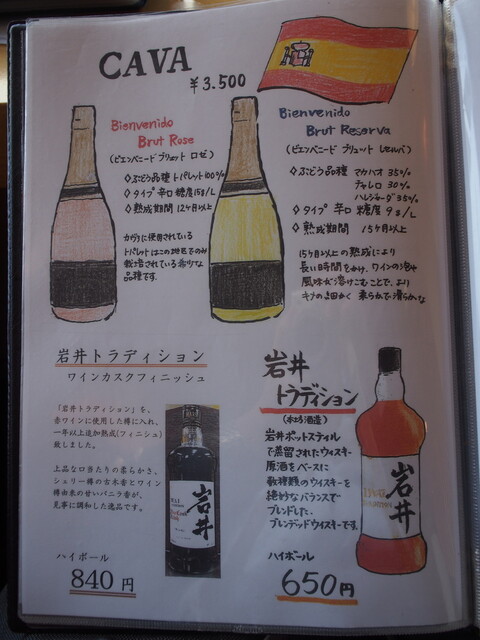 CAVA
¥3.500
Bienvenido
Brut Rose
(ビエンバニード ブリュット ロゼ)
◇ぶどう品種 トバレット100%
◇タイプ 辛口 糖度15g/L
◇熟成期間 12ヶ月以上
カヴァに使用されている
トバレットはこの地区でのみ
栽培されている
品種です。
Bienvenido
Brut Reserva
(ビエンバニード ブリュット レセルバ)
◇ぶどう品種 マカバオ 35%
チャレロ 30%
パレジャーダ 35%
◇タイプ 辛口 糖度 9g/L
◇熟成期間 15ヶ月以上
15ヶ月以上の熟成により
長い時間をかけ、ワインの泡や
風味が溶けこむことで、より
キメの細かく 柔らかで滑らかな
岩井トラディション
ワインカスクフィニッシュ
「岩井トラディション」を、
赤ワインに使用した樽に入れ、
一年以上追加熟成(フィニッシュ)
致しました。
上品な口当たりの柔らかさ、
シェリー樽の古木香とワイン
樽由来の甘いバニラ香が、
見事に調和した逸品です。
岩井
ハイボール
840 円
岩井
トラディション
(本坊酒造)
岩井ポットスティル
で蒸留されたウイスキー
原酒をベースに
数種類のウイスキーを
絶妙なバランスで
ブレンドした、
ブレンデッドウイスキーです。
岩井
ハイボール
650円